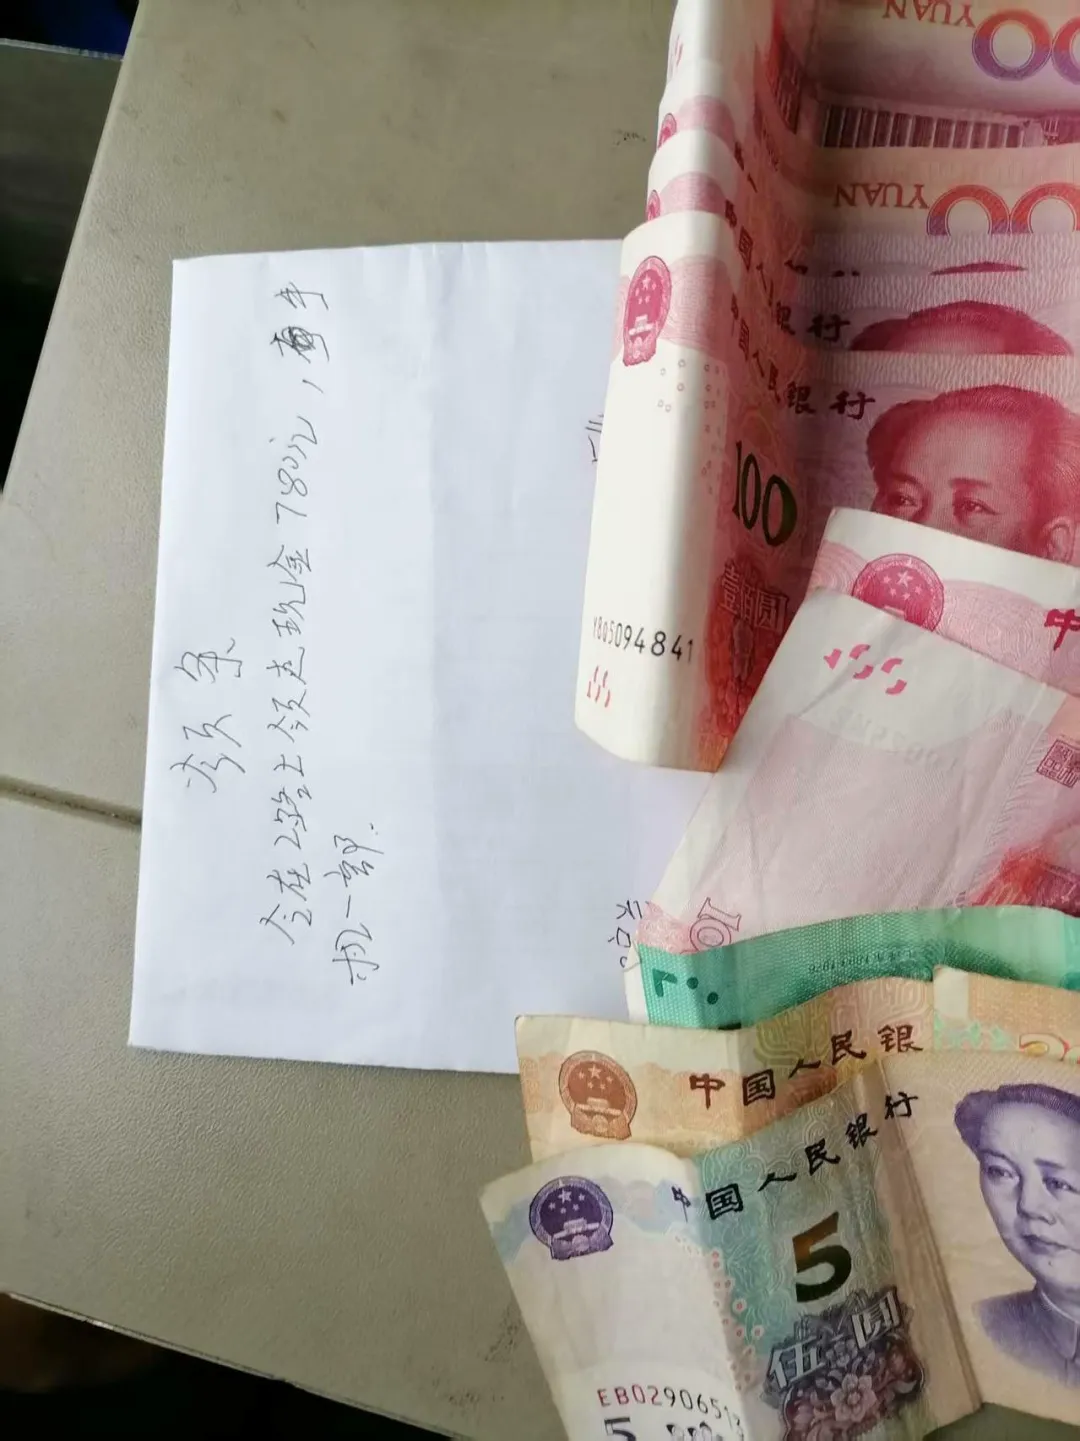 领条
今在2路上领走现金780元，手
机一部.
YUAN
YUAN
中国人民银行
中国人民银行
100
壹佰圆
YB05094841
中
100
中国人民银
中国人民银行
5
伍圆
EB0290651
5